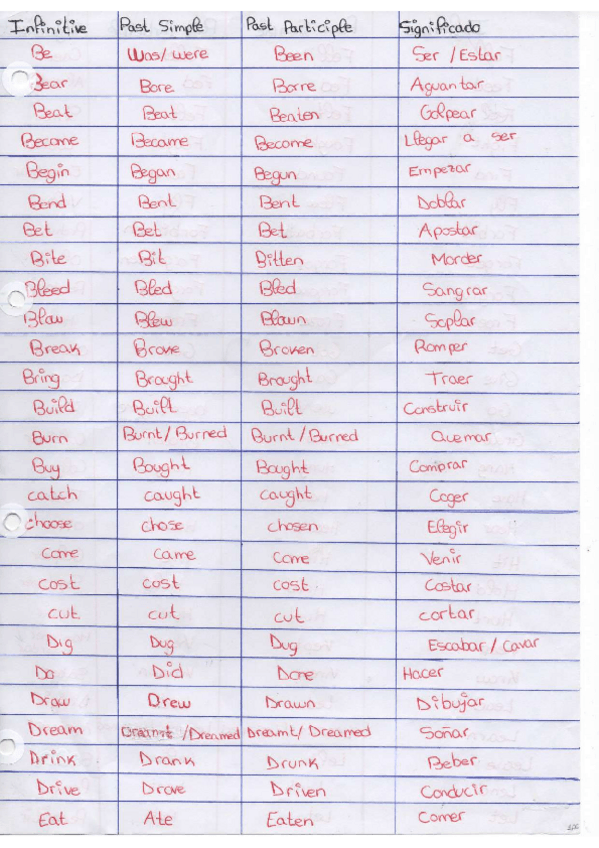 Infinitive Past Simple Past Participle Significado
Be Was/were Been Ser / Estar
Bear Bore Borre Aguantar
Beat Beat Beaten Golpear
Become Became Become Llegar a ser
Begin Began Begun Empezar
Bend Bent Bent Doblar
Bet Bet Bet Apostar
Bite Bit Bitten Morder
Bleed Bled Bled Sangrar
Blow Blew Blown Soplar
Break Broke Broken Romper
Bring Brought Brought Traer
Build Built Built Construir
Burn Burnt/Burned Burnt/Burned Quemar
Buy Bought Bought Comprar
catch caught caught Coger
choose chose chosen Elegir
Come came Come Venir
cost cost cost. Costar
cut cut cut cortar
Dig Dug Dug Escabar / Cavar
Do Did Done Hacer
Draw Drew Drawn Dibujar
Dream /Dreamed Dreamt/ Dreamed Soñar
Drink Drank Drunk Beber
Drive Drove Driven Conducir
Eat Ate Eaten Comer